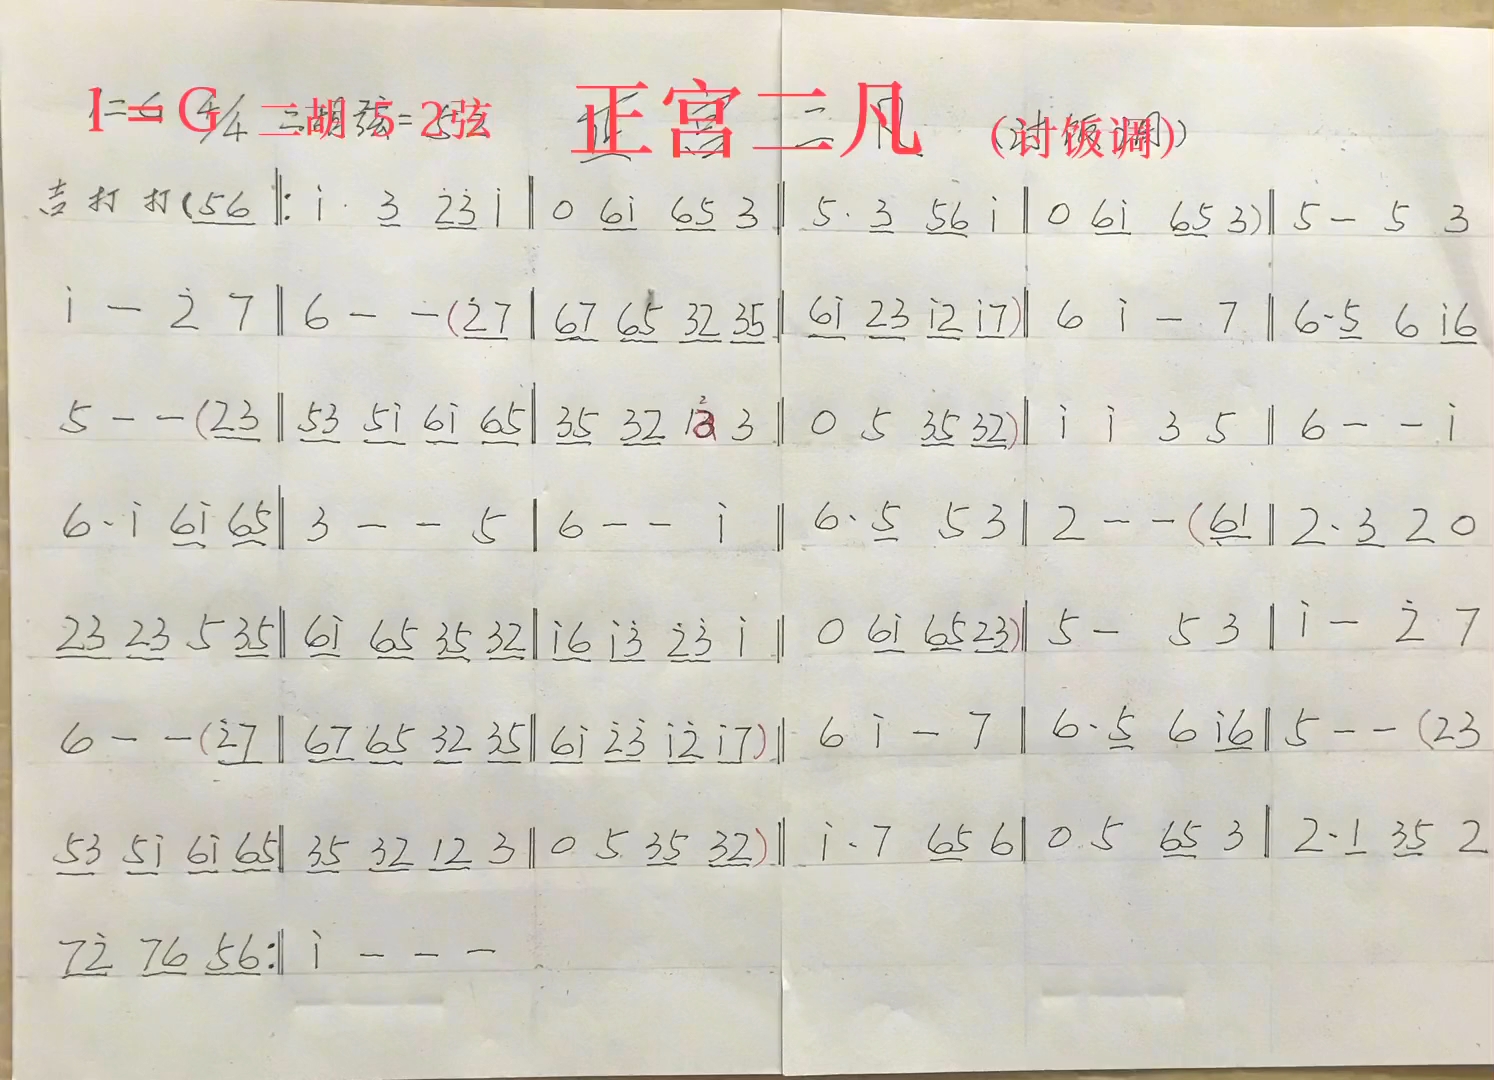 1=G 4/4 二胡弦=52 正宫二凡 (讨饭调)
1=G 二胡 5 2弦 正宫二凡 (讨饭调)
吉 打 打 (56 ‖: i · 3 2̇3̇ i ‖ 0 6i 65 3 ‖ 5 · 3 56 i ‖ 0 6i 65 3) ‖ 5 — 5 3
i — 2̇ 7 ‖ 6 — — (2̇7 ‖ 67 65 32 35 ‖ 6i 2̇3 i2̇ i7) ‖ 6 i — 7 ‖ 6·5 6 i6
5 — — (23 ‖ 53 5i 6i 65 ‖ 35 32 12 3 ‖ 0 5 35 32) ‖ i i 3 5 ‖ 6 — — i
6·i 6i 65 ‖ 3 — — 5 ‖ 6 — — i ‖ 6·5 5 3 ‖ 2 — — (61 ‖ 2·3 2 0
23 23 5 35 ‖ 6i 65 35 32 ‖ i6 i3̇ 2̇3̇ i ‖ 0 6i 65 23) ‖ 5 — 5 3 ‖ i — 2̇ 7
6 — — (2̇7 ‖ 67 65 32 35 ‖ 6i 2̇3̇ i2̇ i7) ‖ 6 i — 7 ‖ 6·5 6 i6 ‖ 5 — — (23
53 5i 6i 65 ‖ 35 32 12 3 ‖ 0 5 35 32) ‖ i·7 65 6 ‖ 0 5 65 3 ‖ 2·1 35 2
72̇ 76 56 :‖ i — — —